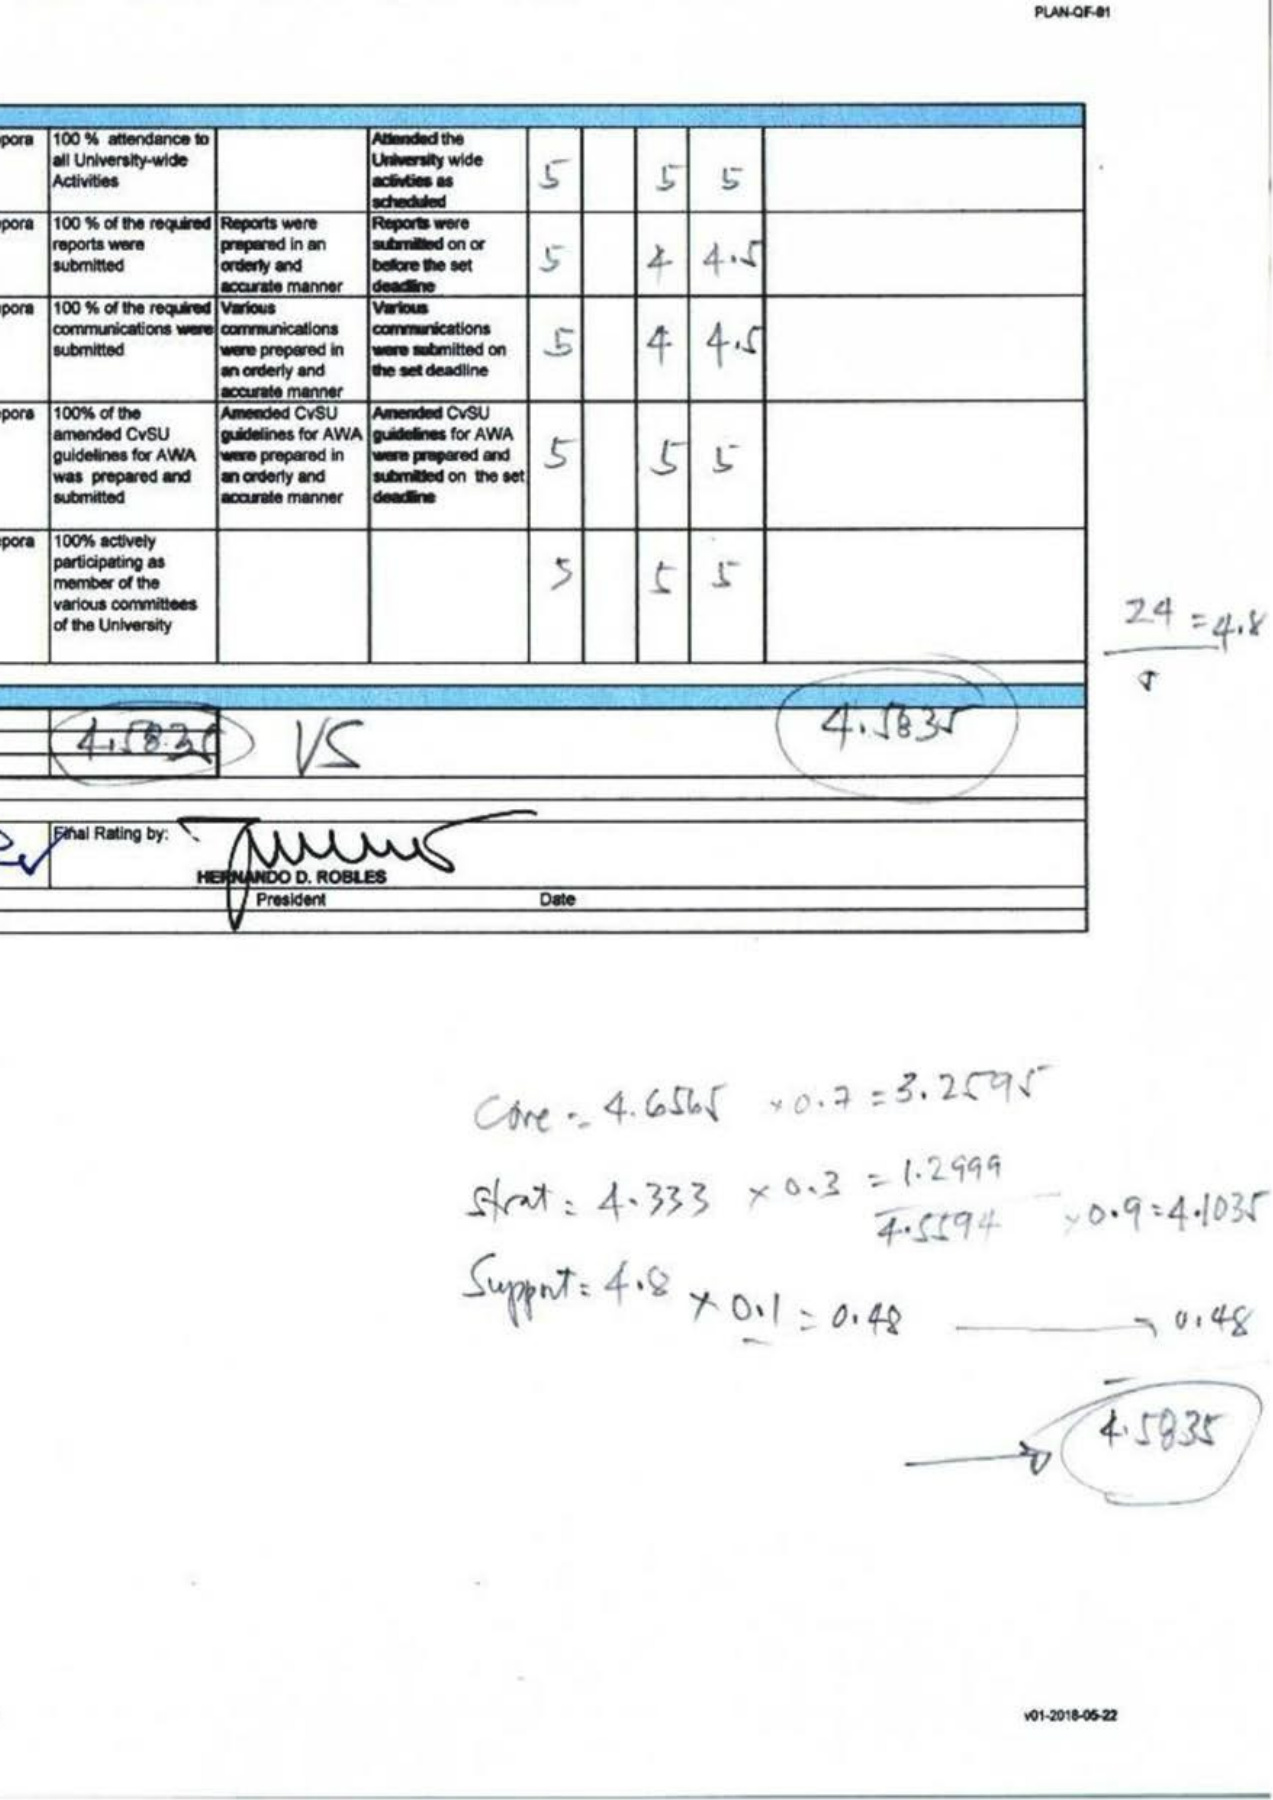 PLAN-QF-01
pora
100 % attendance to
all University-wide
Activities
Attended the
University wide
activties as
scheduled
5 5 5
pora
100 % of the required
reports were
submitted
Reports were
prepared in an
orderly and
accurate manner
Reports were
submitted on or
before the set
deadline
5 4 4.5
pora
100 % of the required
communications were
submitted
Various
communications
were prepared in
an orderly and
accurate manner
Various
communications
were submitted on
the set deadline
5 4 4.5
pora
100% of the
amended CvSU
guidelines for AWA
was prepared and
submitted
Amended CvSU
guidelines for AWA
were prepared in
an orderly and
accurate manner
Amended CvSU
guidelines for AWA
were prepared and
submitted on the set
deadline
5 5 5
pora
100% actively
participating as
member of the
various committees
of the University
5 5 5
24 = 4.8
5
4.5835 VS 4.5835
Final Rating by:
HERNANDO D. ROBLES
President Date
Core = 4.6565 × 0.7 = 3.2595
Strat = 4.333 × 0.3 = 1.2999
4.5594 × 0.9 = 4.1035
Support = 4.8 × 0.1 = 0.48 0.48
4.5835
v01-2018-05-22